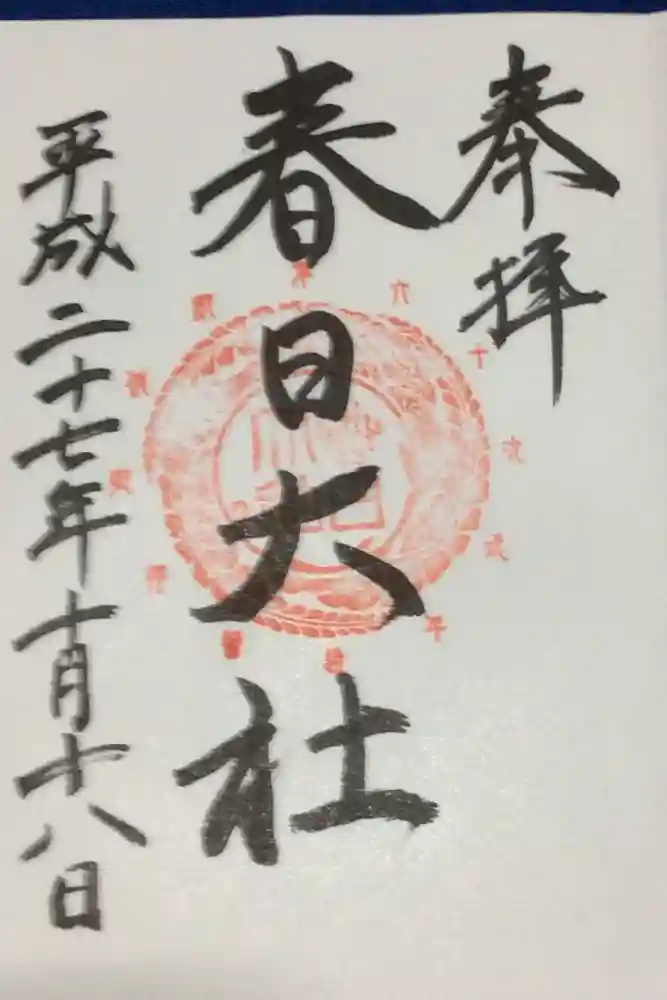 奉拝
春日大社
平成二十七年十月十八日